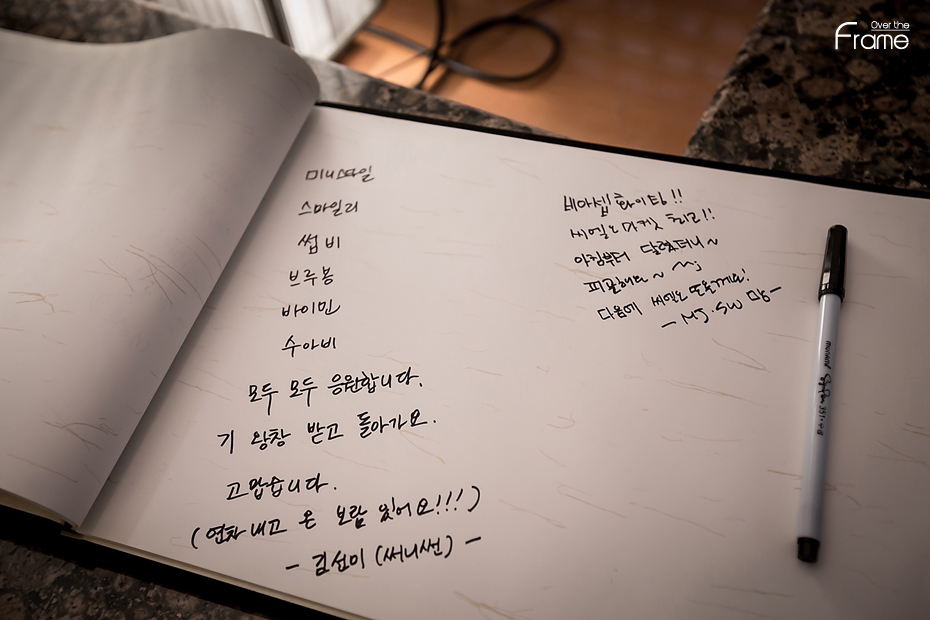 Over the
Frame
미니스타일
스마일리
썹비
브루봉
바이민
수아비
모두 모두 응원합니다.
기 왕창 받고 돌아가요.
고맙습니다.
(연차내고 온 보람 있어요!!!)
- 김선미 (써니썬) -
화이팅!!
아침부터 달렸더니~
다음에 또올게요!
- MJ.SW 맘 -
monami